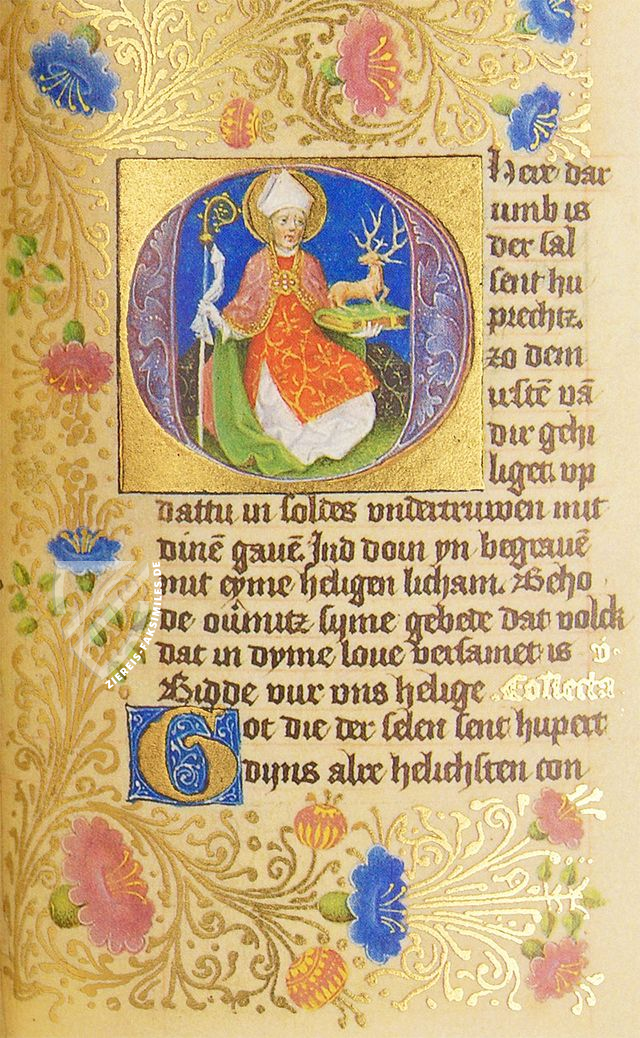 O Here dar
umb is
der sal
sent hu
prechtz.
zo dem
ustē vā
dir gehi
liget. up
dattu in soldes undertruwen mit
dinē gauē. Ind doin yn begrauē
mit eyme heligen licham. Beho
de oůmitz syme gebede dat volck
dat in dyme loue versamet is v.
Bidde vur uns helige Collecta
Got die der selen sent hupert
dijns alre helichsten con
ZIEREIS-FAKSIMILES.DE